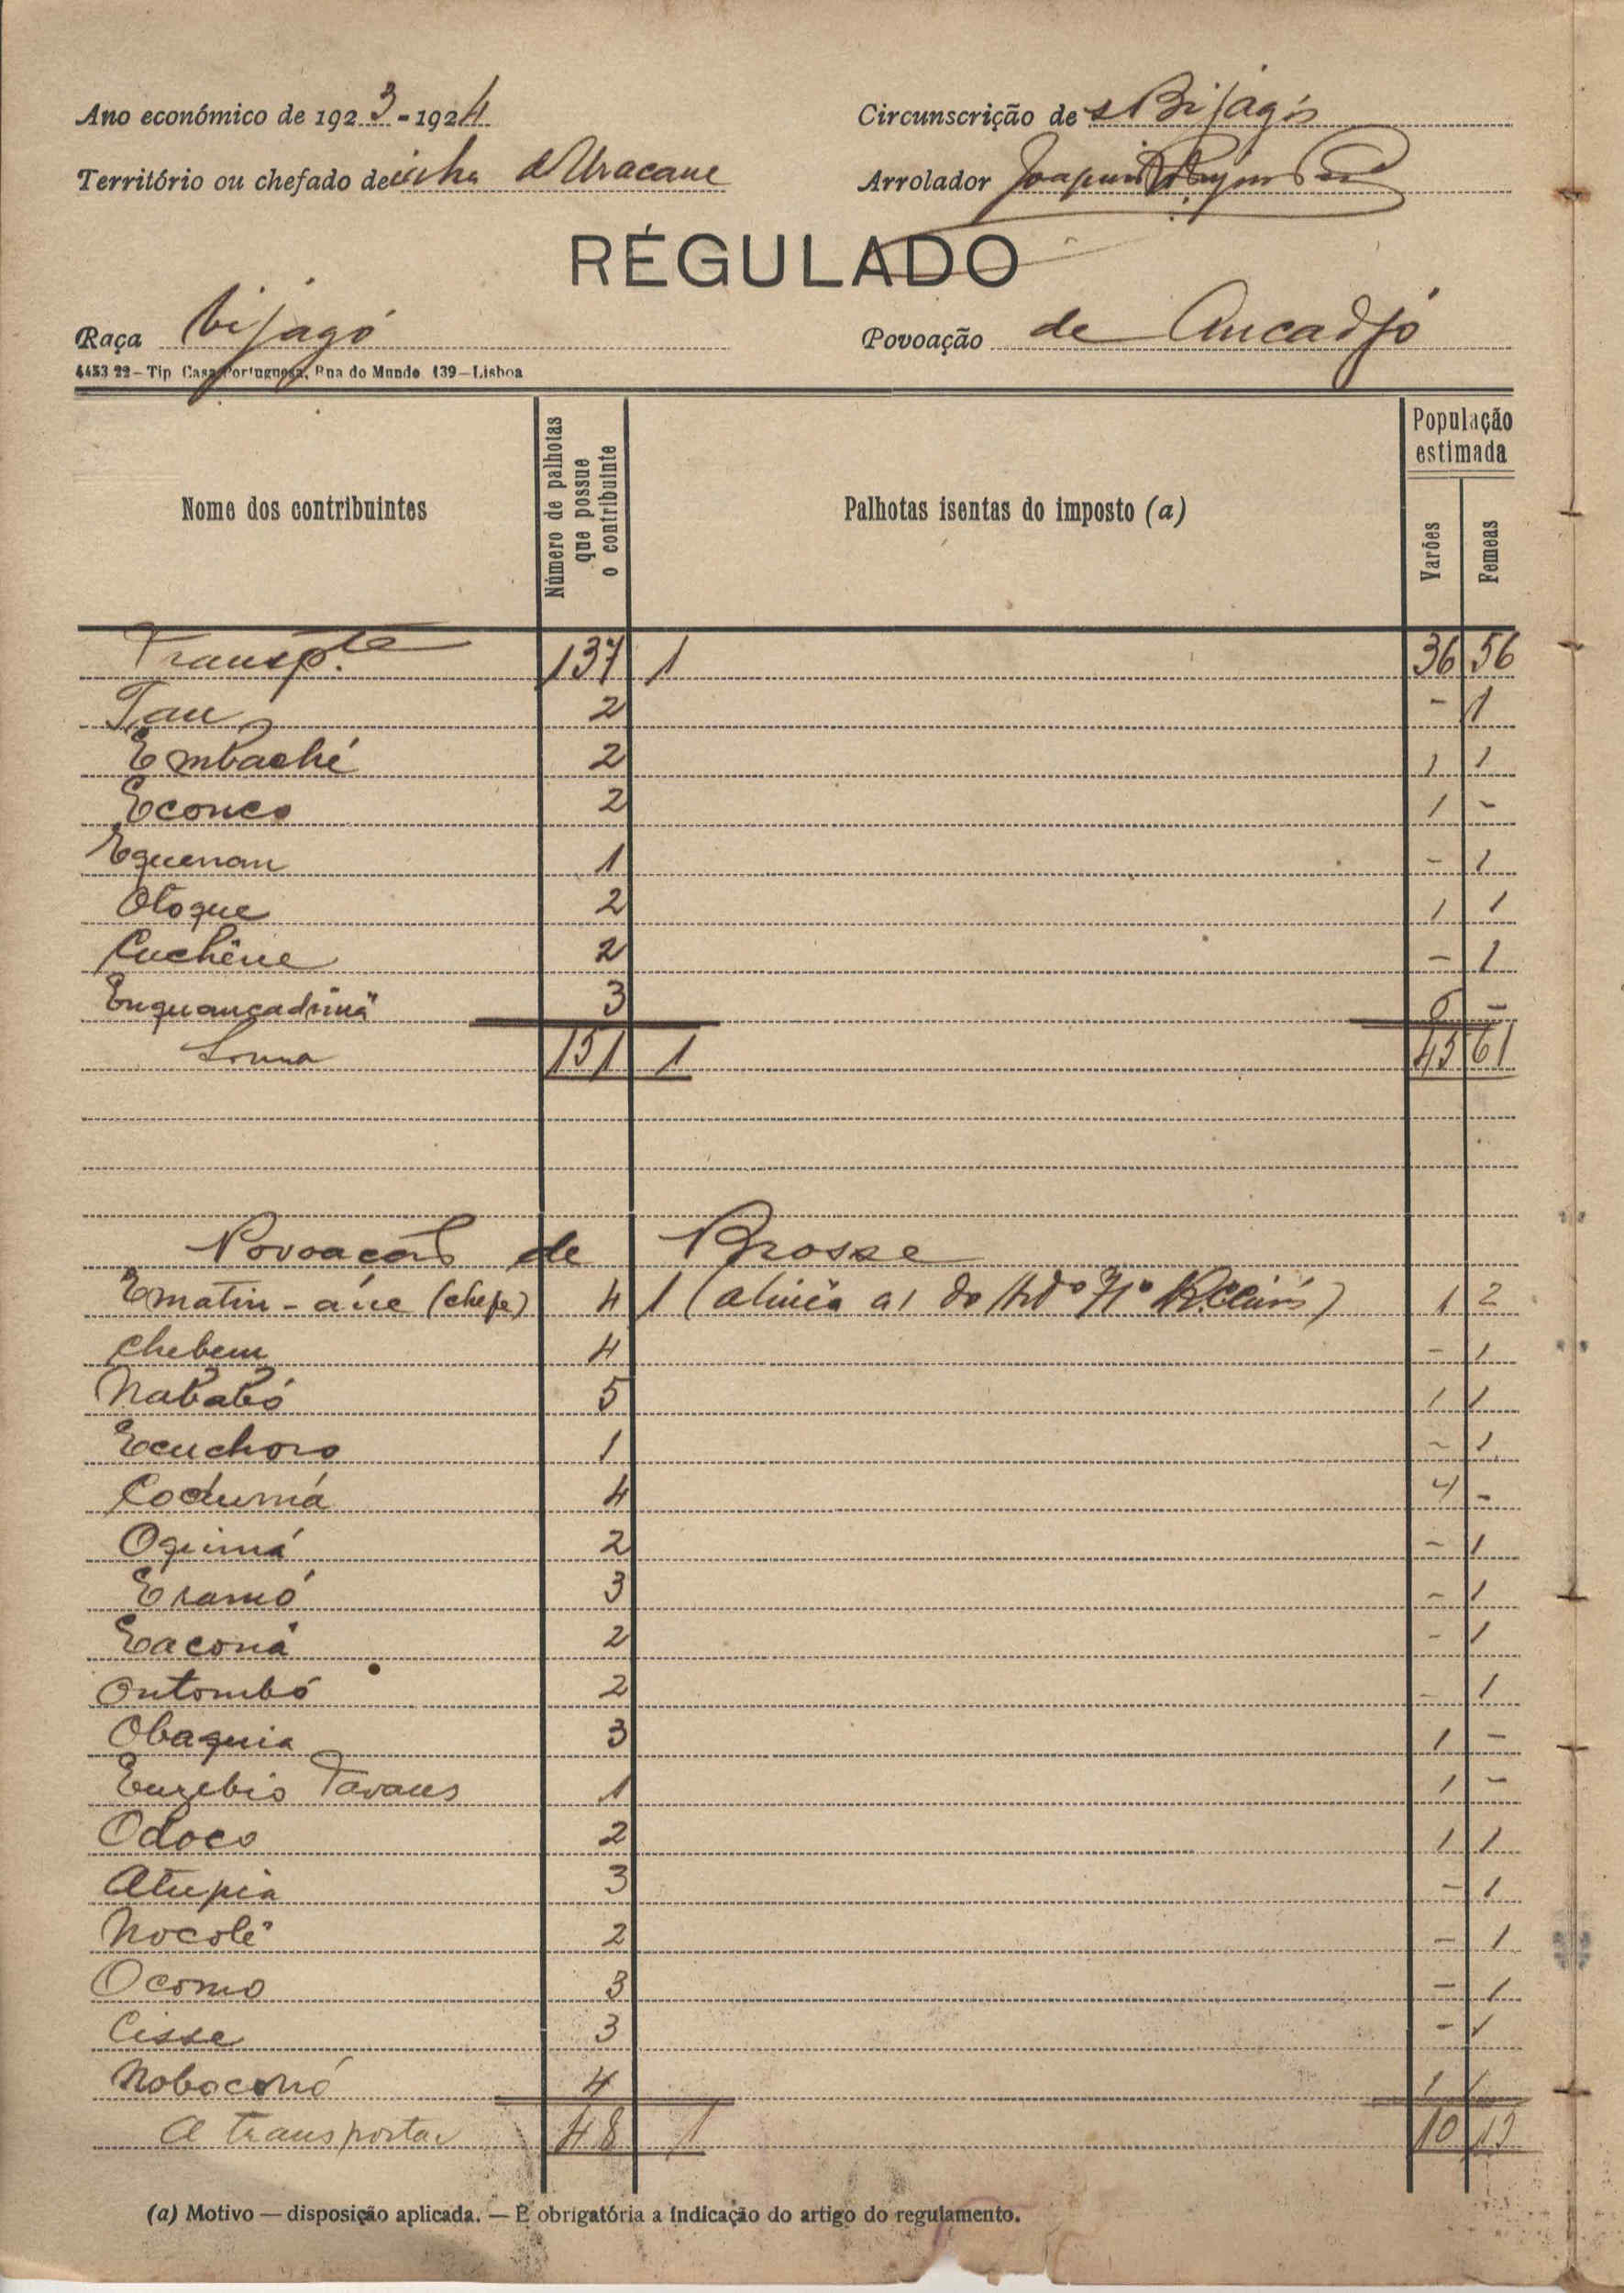 Ano económico de 1923-1924 Circunscrição de Bijagós
Território ou chefado de ilha d'Uracane Arrolador Joaquim
RÉGULADO
Raça bijagó Povoação de Ancadjó
4453 22—Tip Casa Portuguesa, Rua do Mundo 139—Lisboa
Nome dos contribuintes Número de palhotas que possue o contribuinte Palhotas isentas do imposto (a) População estimada
Varões Femeas
Transp.te 137 1 36 56
Tau 2 - 1
Embaché 2 1 1
Econco 2 1 -
Equenan 1 - 1
Otoque 2 1 1
Cuchêne 2 - 1
Enquancadriná 3 -
Soma 151 1 45 61
Povoação de Brosse
Ematin-áne (chefe) 4 1 (alinêa a) do Art.º 7º 1 2
Chebem 4 - 1
Nababó 5 1 1
Ecuchoro 1 - 1
Codumá 4 4 -
Oquimá 2 - 1
Eramó 3 - 1
Eaconá 2 - 1
Ontombó 2 - 1
Obaquia 3 1 -
Euzebio Tavares 1 1 -
Odoco 2 1 1
Atupia 3 - 1
Nocolê 2 - 1
Ocomo 3 - 1
Cisse 3 - 1
Noboconó 4 1 1
A transportar 48 1 10 15
(a) Motivo — disposição aplicada. — É obrigatória a indicação do artigo do regulamento.